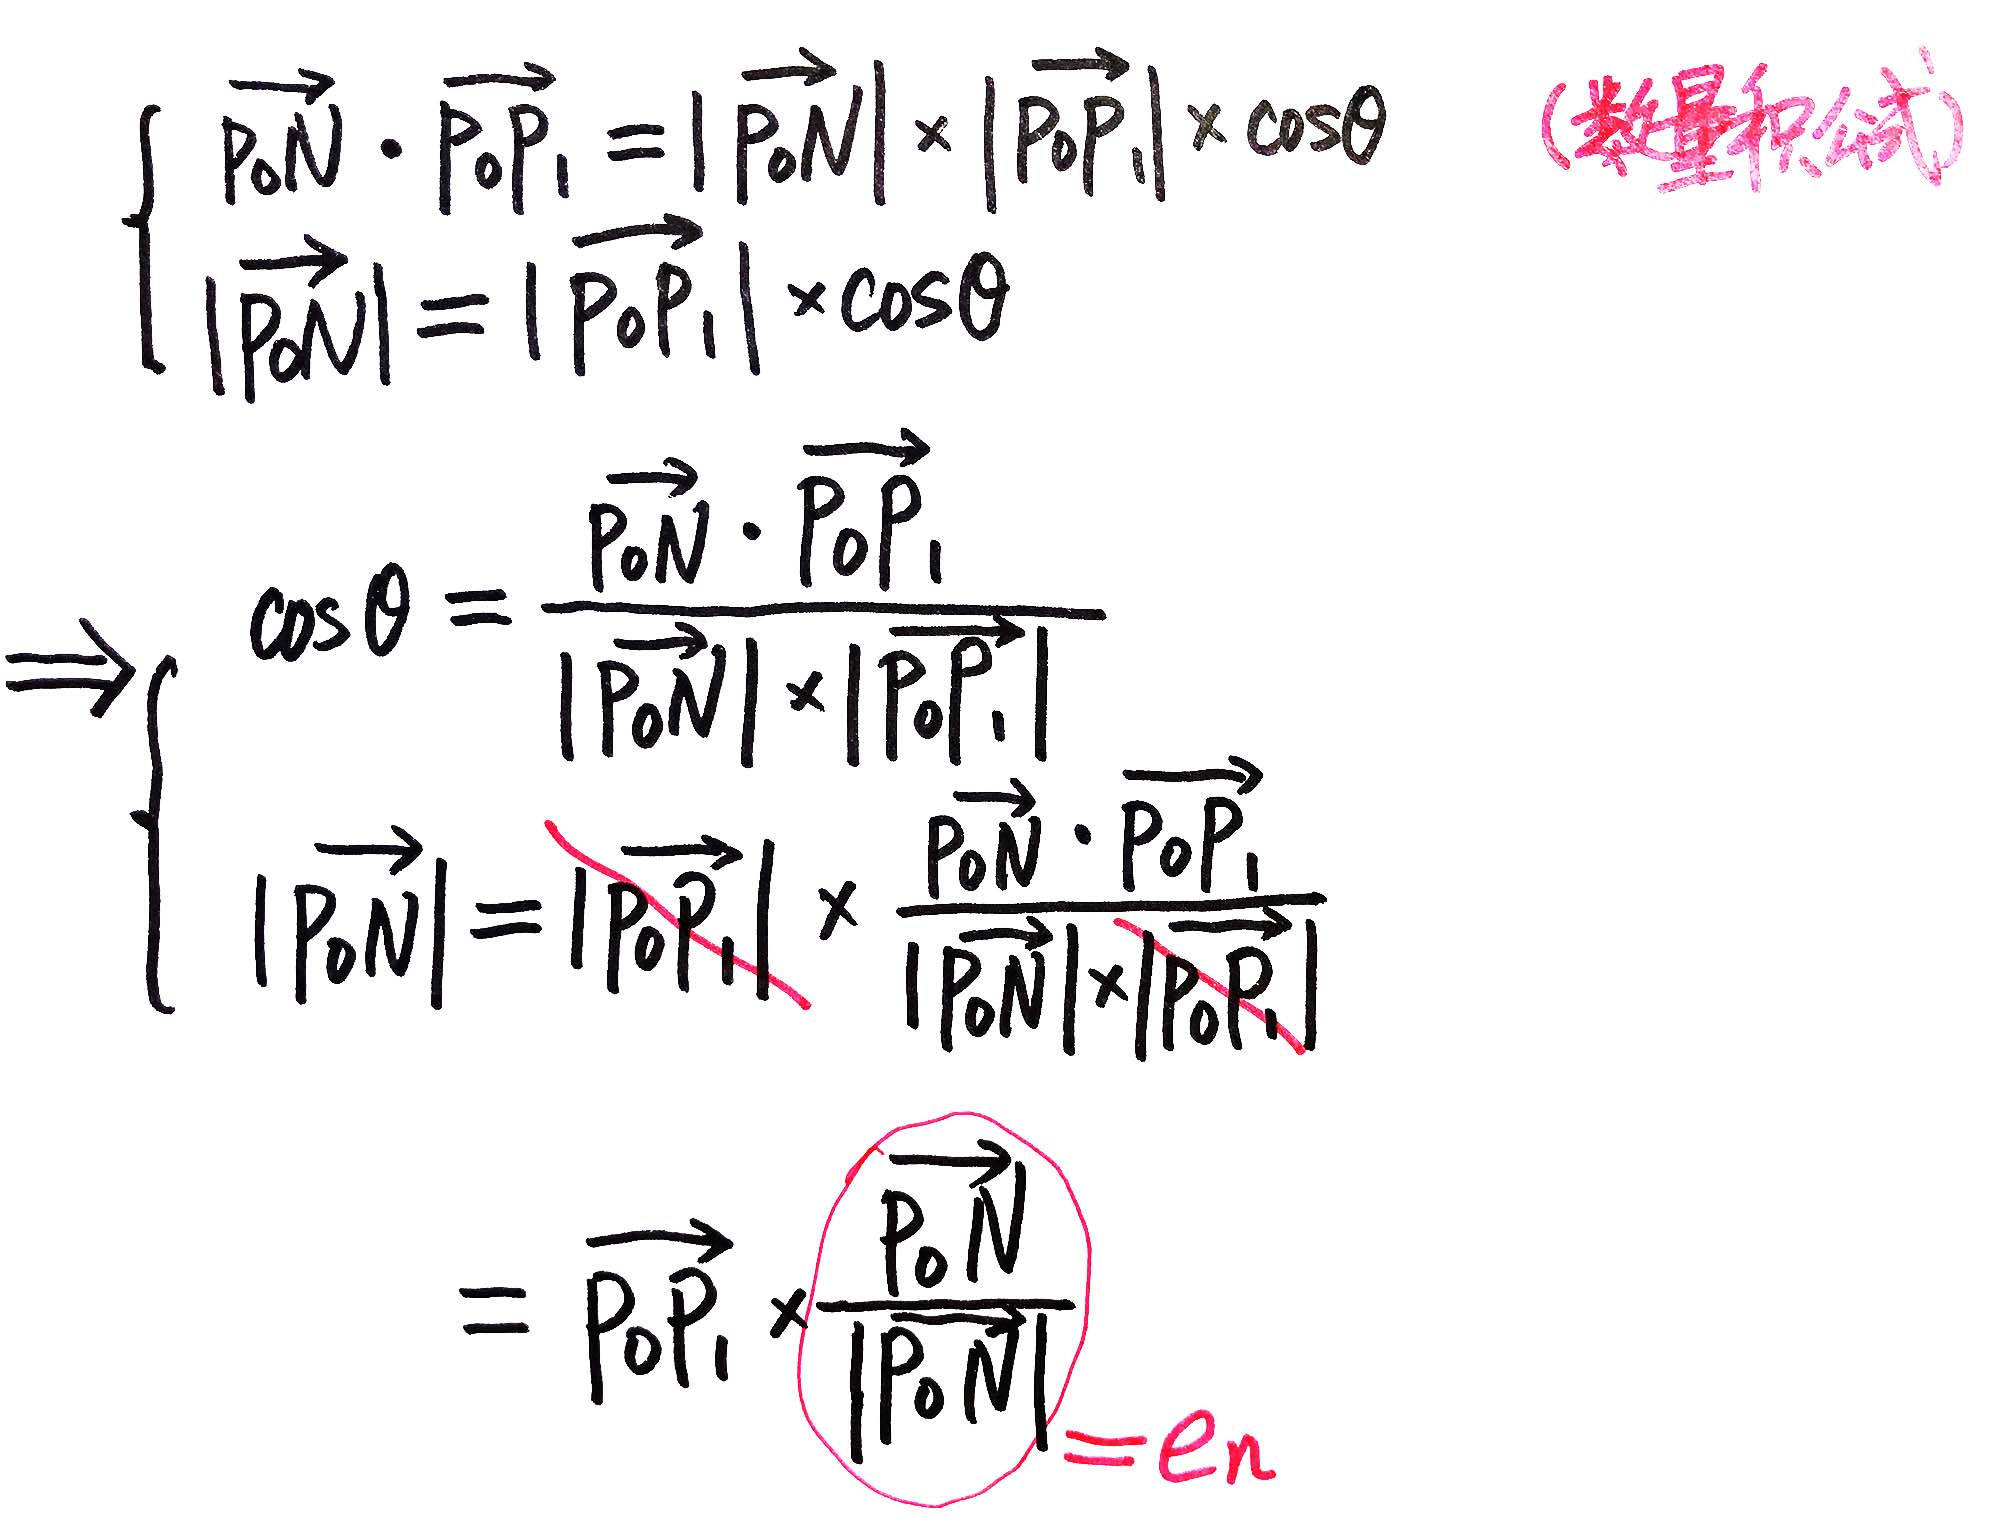 $\overrightarrow{P_0N} \cdot \overrightarrow{P_0P_1} = |\overrightarrow{P_0N}| \times |\overrightarrow{P_0P_1}| \times \cos\theta$ (数量积公式)
$|\overrightarrow{P_0N}| = |\overrightarrow{P_0P_1}| \times \cos\theta$
$\Rightarrow \cos\theta = \frac{\overrightarrow{P_0N} \cdot \overrightarrow{P_0P_1}}{|\overrightarrow{P_0N}| \times |\overrightarrow{P_0P_1}|}$
$|\overrightarrow{P_0N}| = |\overrightarrow{P_0P_1}| \times \frac{\overrightarrow{P_0N} \cdot \overrightarrow{P_0P_1}}{|\overrightarrow{P_0N}| \times |\overrightarrow{P_0P_1}|}$
$= \overrightarrow{P_0P_1} \times \frac{\overrightarrow{P_0N}}{|\overrightarrow{P_0N}|} = e_n$